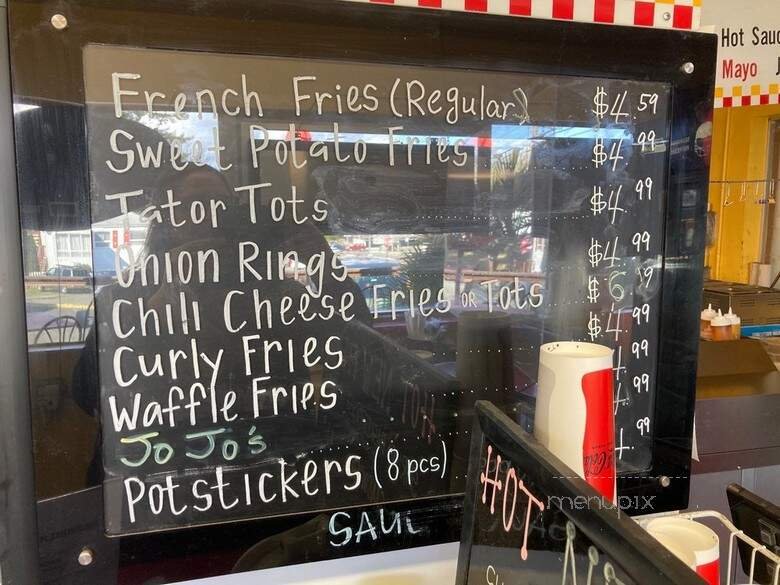 French Fries (Regular) $4.59
Sweet Potato Fries $4.99
Tator Tots $4.99
Onion Rings $4.99
Chili Cheese Fries OR Tots $6.
Curly Fries $4.99
Waffle Fries .99
Jo Jo's .99
Potstickers (8 pcs) .99
HOT
menupix
Hot
Mayo